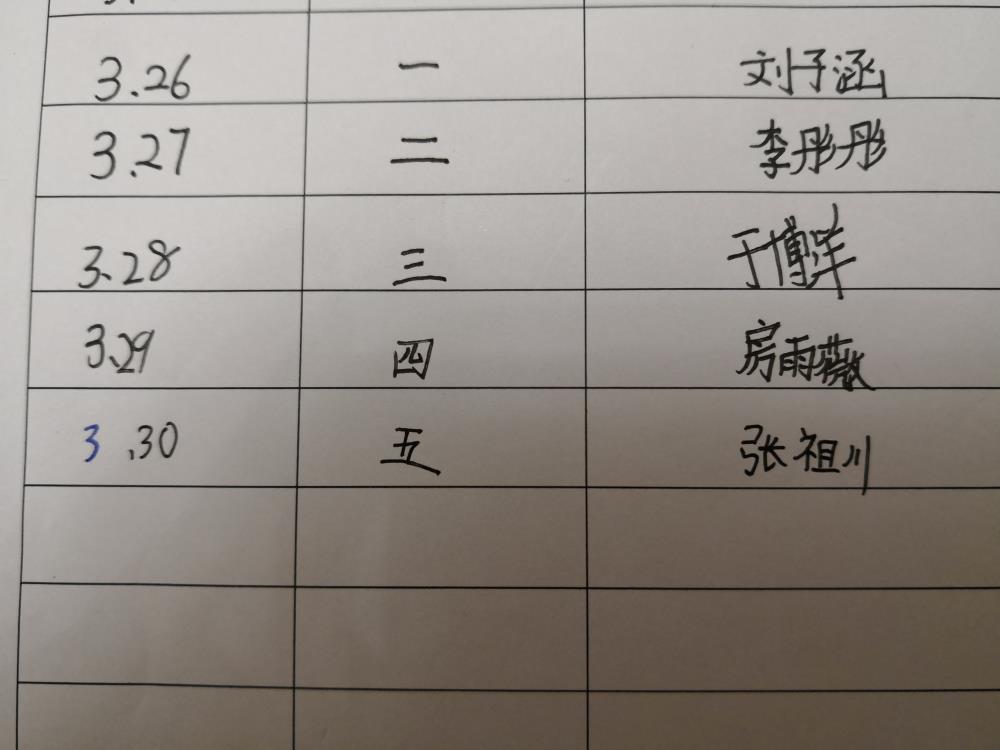 3.26 一 刘子涵
3.27 二 李彤彤
3.28 三 于博洋
3.29 四 房雨薇
3.30 五 张祖川